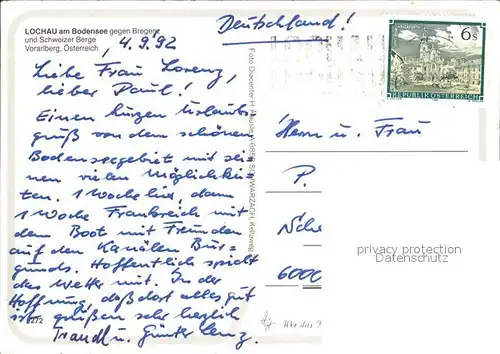 LOCHAU am Bodensee gegen Bregenz
und Schweizer Berge
Vorarlberg, Österreich
4.9.92
Liebe Frau Lorenz,
lieber Paul!
Einen kurzen Urlaubs=
gruß von dem schönen
Bodenseegebiet mit sei=
nen vielen Möglichkei=
ten. 1 Woche hier, dann
1 Woche Frankreich mit
dem Boot mit Freunden
auf den Kanälen Bur=
gunds. Hoffentlich spielt
das Wetter mit. In der
Hoffnung, daß dort alles gut
ist grüßen sehr herzlich
Traudl u. Günter Lenz.
Deutschland!
6 S
REPUBLIK ÖSTERREICH
Foto
SCHWARZACH
Herrn u. Frau
P.
6000
privacy protection
Datenschutz